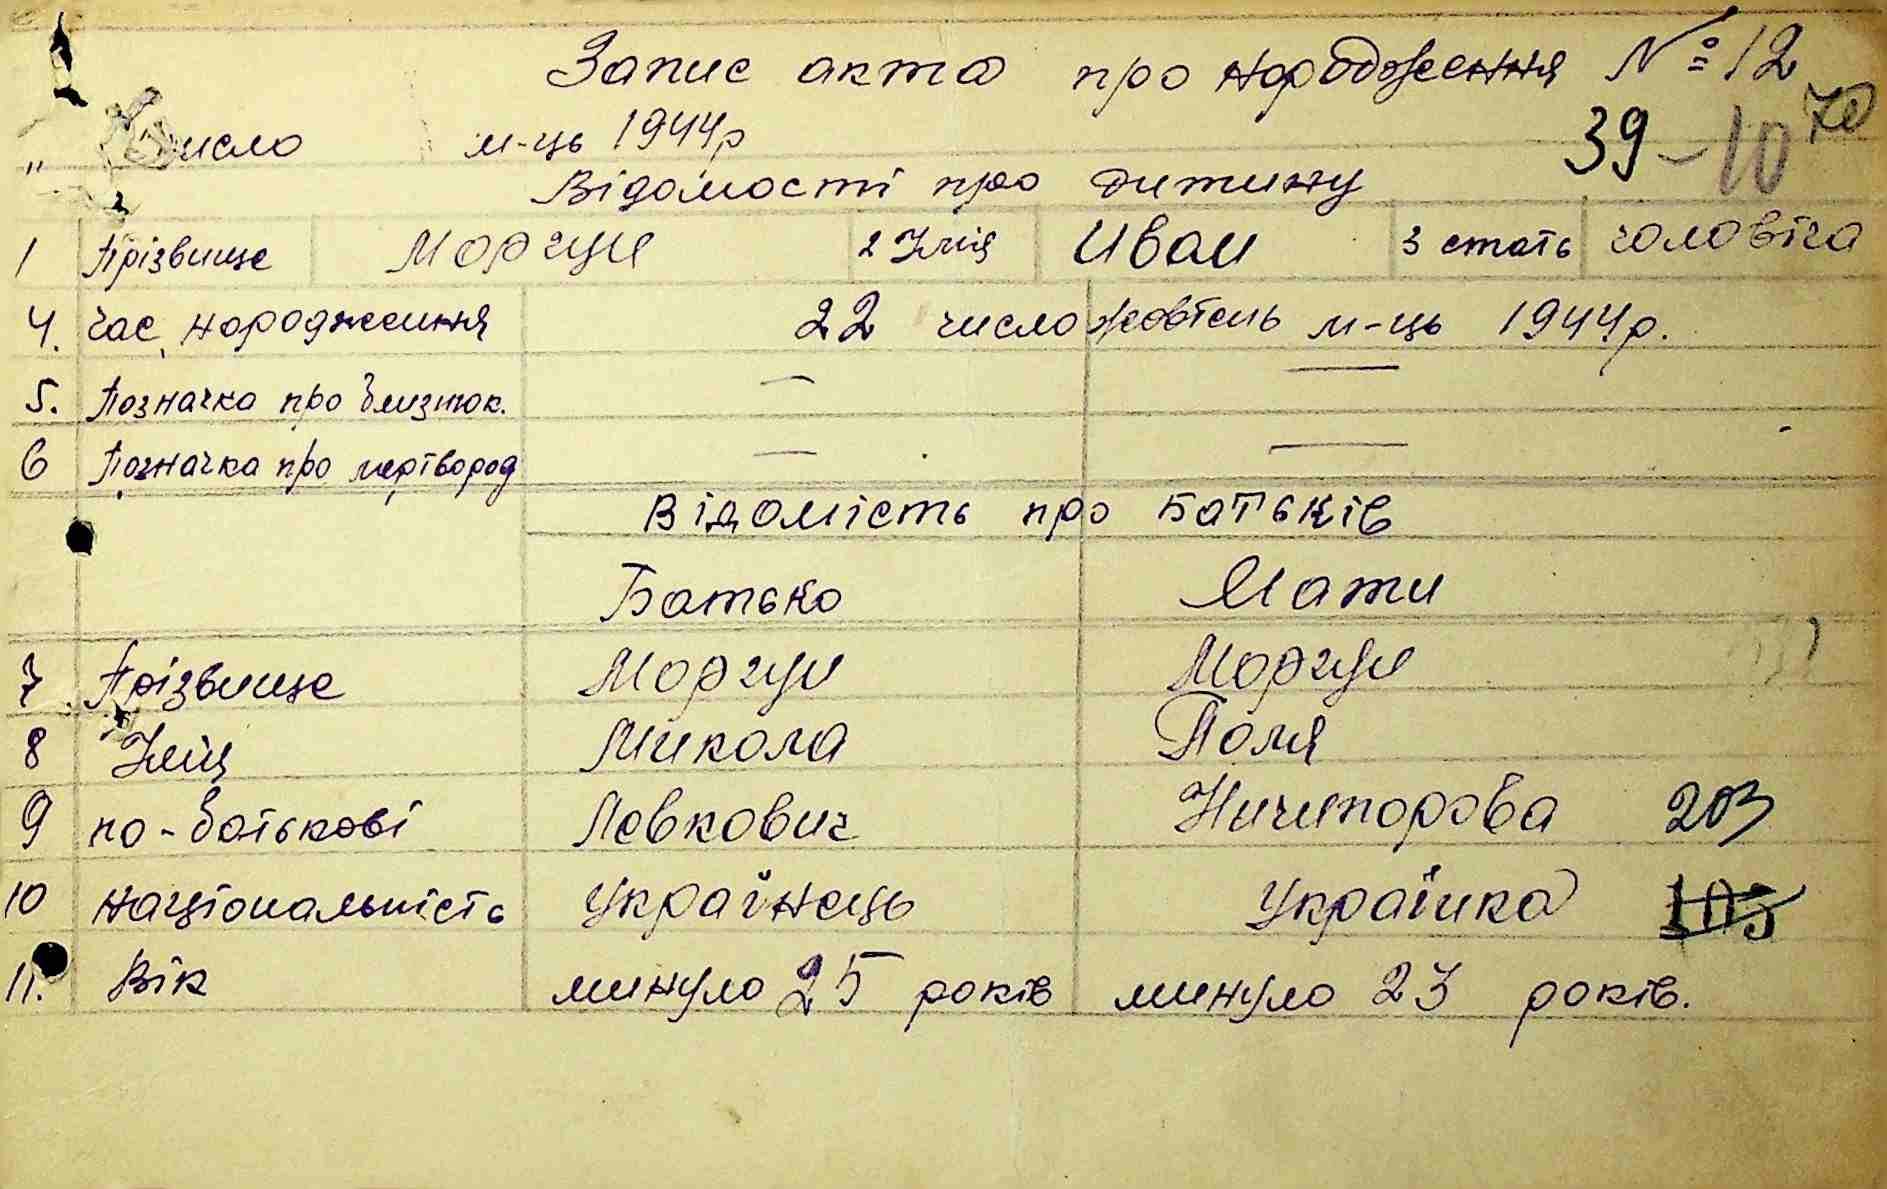 Запис акта про народження № 12
" число м-ць 1944р 39-10 70
Відомості про дитину
1 Прізвище Моргун 2 Імія Иван 3 стать чоловіча
4. час народження 22 число жовтень м-ць 1944р.
5. Позначка про близнюк. — —
6 Позначка про мертвород — —
Відомість про Батьків
Батько Мати
7 Прізвище Моргун Моргун
8 Імія Микола Поля
9 по-батькові Левкович Ничипорова 203
10 національність українець українка 103
11. Вік минуло 25 років минуло 23 років.